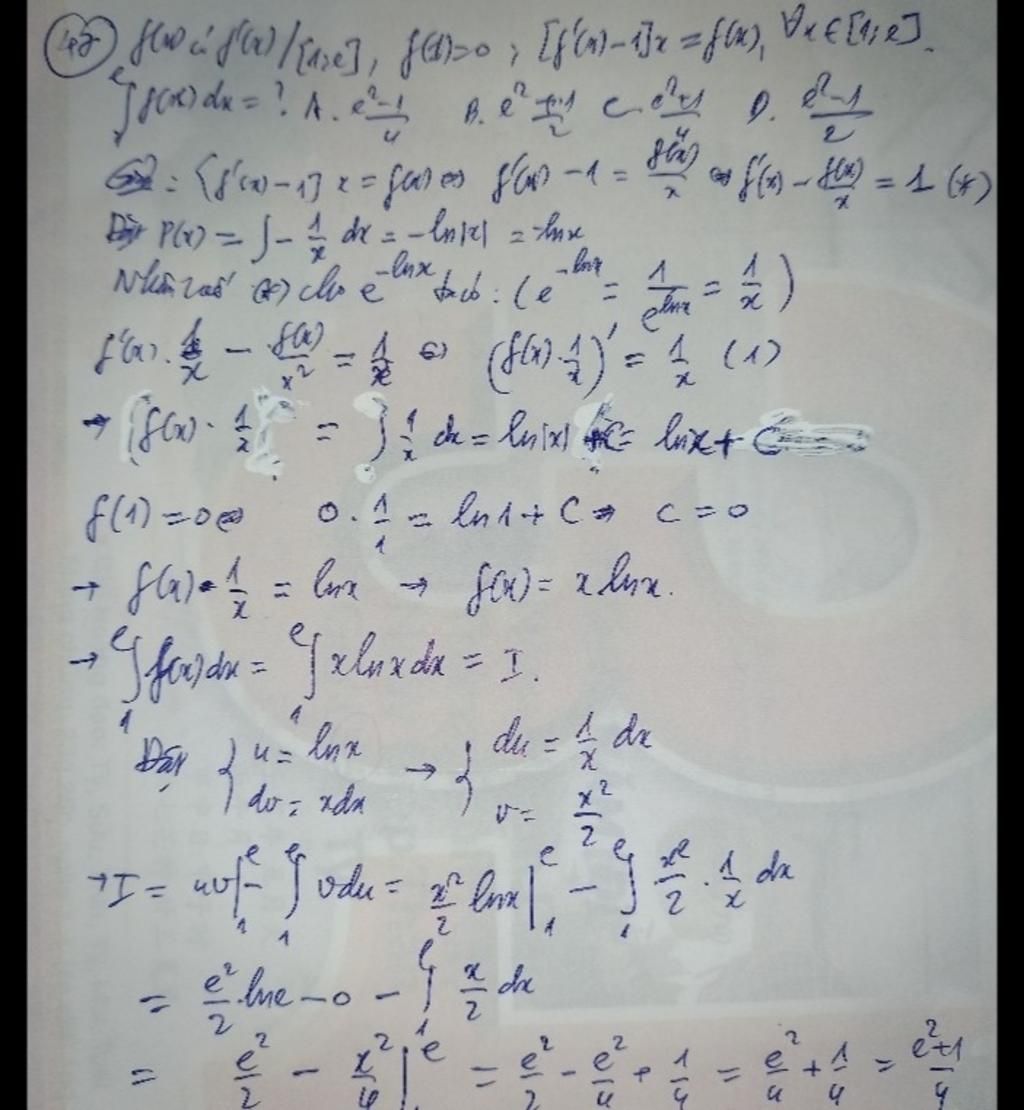 48 f(x) có f'(x)/[1;e], f(1)=0; [f'(x)-1]x = f(x), ∀x∈[1;e].
∫₁ᵉ f(x)dx = ? A. (e²-1)/4 B. (e²+1)/2 C. (e²+1)/4 D. (e²-1)/2
[f'(x)-1]x = f(x) ⇔ f'(x) - 1 = f(x)/x ⇔ f'(x) - f(x)/x = 1 (*)
Đặt P(x) = ∫ -1/x dx = -ln|x| = -lnx
Nhân (*) cho e^(-lnx) ta có: (e^(-lnx) = 1/e^(lnx) = 1/x)
f'(x) · 1/x - f(x)/x² = 1/x ⇔ (f(x) · 1/x)' = 1/x (1)
→ f(x) · 1/x = ∫ 1/x dx = ln|x| + C = lnx + C
f(1) = 0 ⇔ 0 · 1/1 = ln1 + C ⇒ C = 0
→ f(x) · 1/x = lnx → f(x) = x lnx.
→ ∫₁ᵉ f(x)dx = ∫₁ᵉ x lnx dx = I.
Đặt { u = lnx → { du = 1/x dx
dv = xdx v = x²/2
→ I = uv|₁ᵉ - ∫₁ᵉ vdu = x²/2 lnx |₁ᵉ - ∫₁ᵉ x²/2 · 1/x dx
= e²/2 · lne - 0 - ∫₁ᵉ x/2 dx
= e²/2 - x²/4 |₁ᵉ = e²/2 - e²/4 + 1/4 = e²/4 + 1/4 = (e²+1)/4